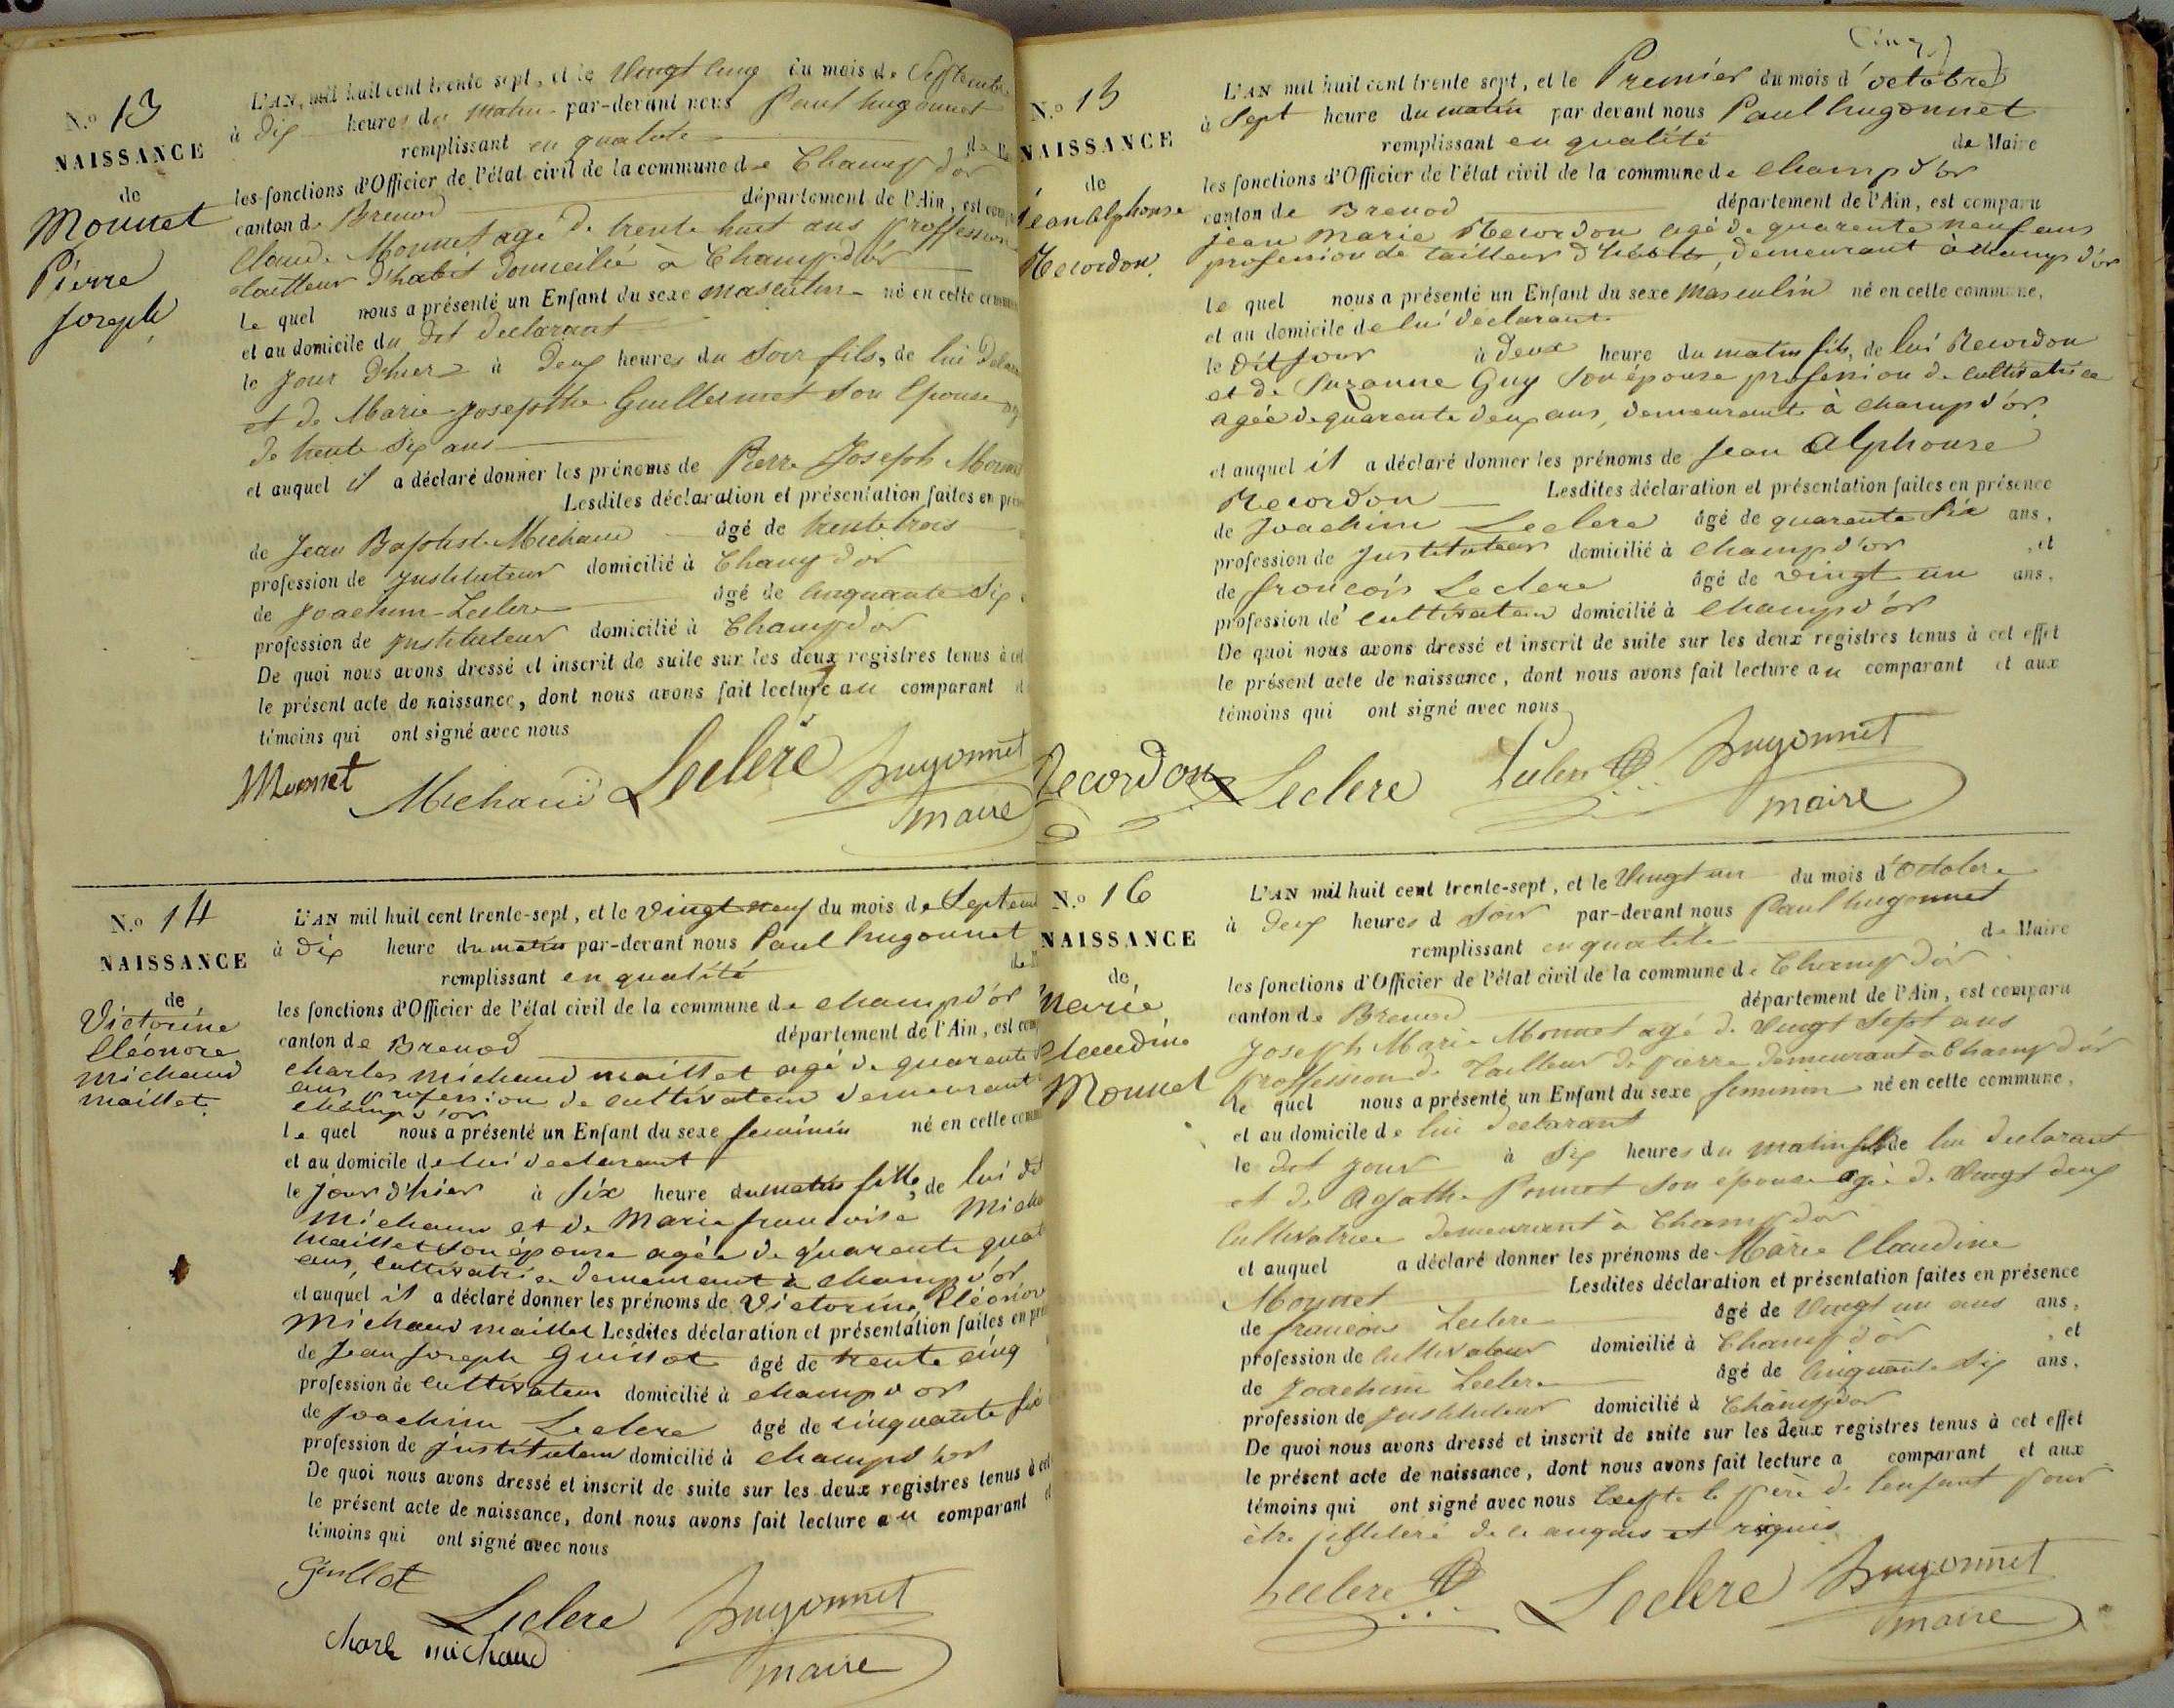 N.º 13
NAISSANCE
de
Monnet
Pierre
Joseph
L'AN, mil huit cent trente sept, et le Vingt cinq du mois de Septembre
à Dix heures du matin par-devant nous Paul hugonnet
remplissant en qualité de
les fonctions d'Officier de l'état civil de la commune de Champ d'or
canton de Brenod département de l'Ain, est
Claude Monnet agé de trente huit ans proffession
tailleur d'habit domicilié à Champ d'or
le quel nous a présenté un Enfant du sexe masculin né en cette
et au domicile du dit declarant
le jour d'hier à Deux heures du Soir fils, de lui
et de Marie Josepthe Guillermet son Epouse
de trente Six ans
et auquel il a déclaré donner les prénoms de Pierre Joseph
Lesdites déclaration et présentation faites en
de Jean Baptiste Michaud âgé de trente trois
profession de Instituteur domicilié à Champ d'or
de Joachim Leclere âgé de Cinquante Six
profession de Instituteur domicilié à Champ d'or
De quoi nous avons dressé et inscrit de suite sur les deux registres tenus à cet
le présent acte de naissance, dont nous avons fait lecture au comparant
témoins qui ont signé avec nous
Monnet Michaud Leclere hugonnet
maire
N.º 14
NAISSANCE
de
Victorine
Eléonore
Michaud
maillet.
L'AN mil huit cent trente-sept, et le vingt neuf du mois de
à dix heure du matin par-devant nous Paul hugonnet
remplissant en qualité
les fonctions d'Officier de l'état civil de la commune de champ d'or
canton de Brenod département de l'Ain, est
charles Michaud maillet agé de quarante
ans profession de cultivateur demeurant
champ d'or
le quel nous a présenté un Enfant du sexe feminin né en cette
et au domicile de lui declarant
le jour d'hier à six heure du matin fille, de lui dit
Michaud et de Marie francoise
maillet son épouse agée de quarante
ans, cultivatrice demeurant à champ d'or
et auquel il a déclaré donner les prénoms de Victorine
Michaud maillet Lesdites déclaration et présentation faites en
de Jean Joseph Guillot âgé de trente cinq
profession de cultivateur domicilié à champ d'or
de Joachim Leclere âgé de cinquante six
profession de instituteur domicilié à champ d'or
De quoi nous avons dressé et inscrit de suite sur les deux registres tenus à cet
le présent acte de naissance, dont nous avons fait lecture au comparant
témoins qui ont signé avec nous
Guillot
Leclere hugonnet
charle michaud maire
N.º 15
NAISSANCE
de
Jean alphonse
Recordon.
L'AN mil huit cent trente sept, et le Premier du mois d'octobre
à Sept heure du matin par devant nous Paul hugonnet
remplissant en qualité de Maire
les fonctions d'Officier de l'état civil de la commune de champ d'or
canton de Brenod département de l'Ain, est comparu
jean marie Recordon agé de quarente neuf ans
profession de tailleur d'habits, demeurant à champ d'or
le quel nous a présenté un Enfant du sexe masculin né en cette commune,
et au domicile de lui déclarant
le dit jour à deux heure du matin fils, de lui Recordon
et de Suzanne Guy son épouse profession de cultivatrice
agée de quarente deux ans, demeurante à champ d'or,
et auquel il a déclaré donner les prénoms de Jean Alphonse
Recordon Lesdites déclaration et présentation faites en présence
de Joachim Leclere âgé de quarente Six ans,
profession de Instituteur domicilié à champ d'or , et
de francois Leclere âgé de vingt un ans.
profession de cultivateur domicilié à champ d'or
De quoi nous avons dressé et inscrit de suite sur les deux registres tenus à cet effet
le présent acte de naissance, dont nous avons fait lecture au comparant et aux
témoins qui ont signé avec nous
Recordon Leclere Leclere hugonnet
maire
N.º 16
NAISSANCE
de
Marie
Claudine
Monnet
L'AN mil huit cent trente-sept, et le Vingt un du mois d'Octobre
à Deux heures d Soir par-devant nous Paul hugonnet
remplissant en qualité de Maire
les fonctions d'Officier de l'état civil de la commune de Champ d'or
canton de Brenod département de l'Ain, est comparu
Joseph Marie Monnet agé de Vingt Sept ans
proffession de Tailleur de pierre demeurant à Champ d'or
le quel nous a présenté un Enfant du sexe feminin né en cette commune,
et au domicile de lui declarant
le dit jour à Six heures du matin de lui declarant
et de Agathe Ponnet son épouse agée de Vingt deux
Cultivatrice demeurant à Champ d'or
et auquel a déclaré donner les prénoms de Marie Claudine
Monnet Lesdites déclaration et présentation faites en présence
de francois Leclere âgé de Vingt un ans ans,
profession de Cultivateur domicilié à Champ d'or , et
de Joachim Leclere âgé de Cinquante Six ans.
profession de Instituteur domicilié à Champ d'or
De quoi nous avons dressé et inscrit de suite sur les deux registres tenus à cet effet
le présent acte de naissance, dont nous avons fait lecture a comparant et aux
témoins qui ont signé avec nous Excepte le père de l'enfant pour
être illiteré de ce enquis et riquis
Leclere Leclere hugonnet
maire